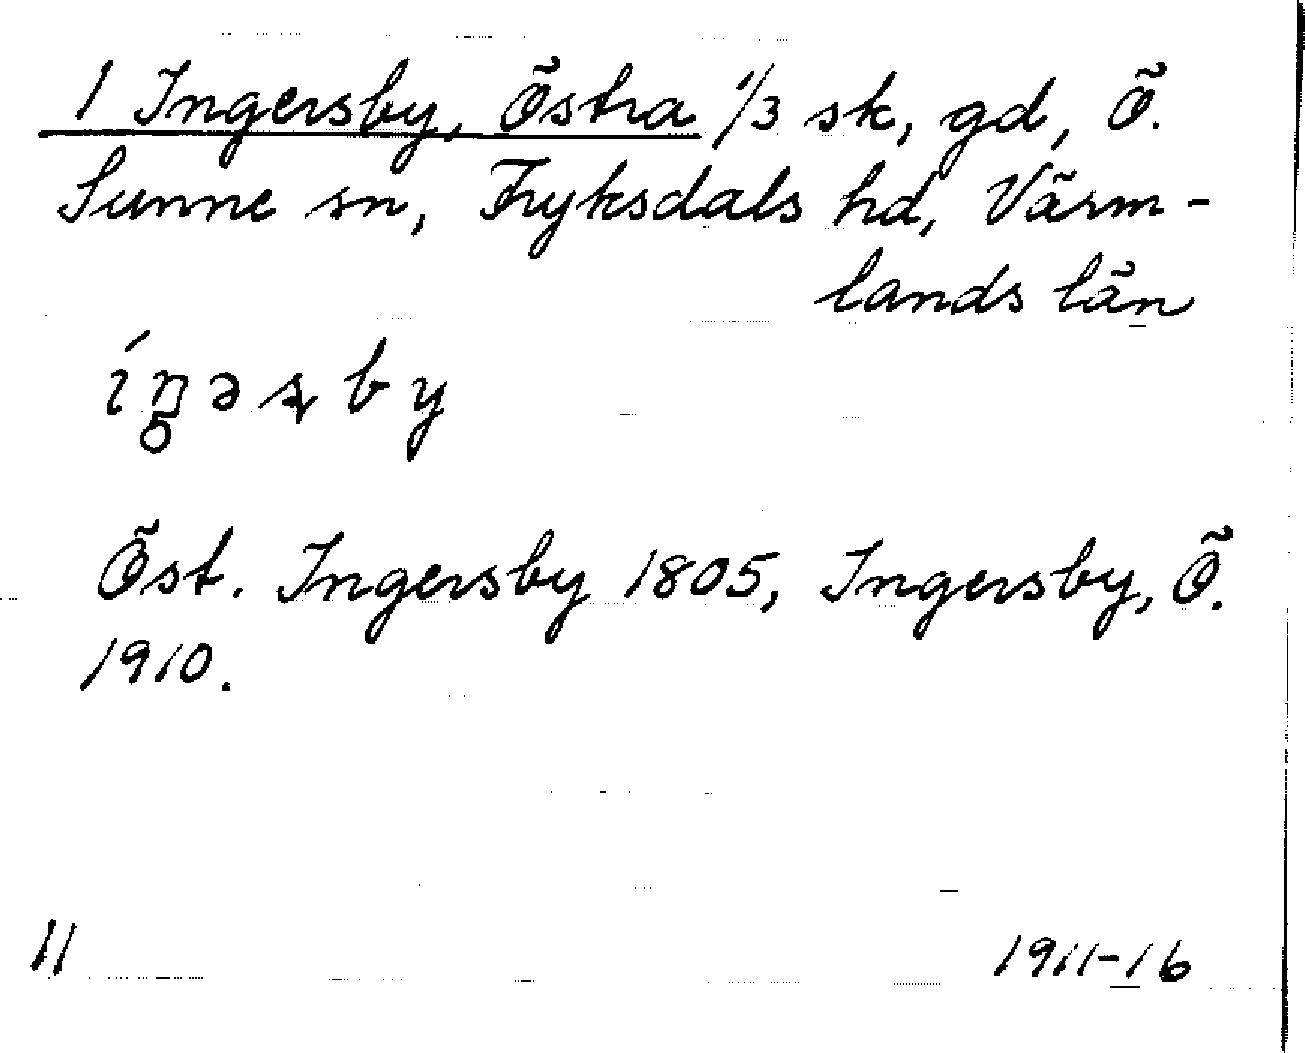 1 Ingersby, Östra 1/3 sk, gd, Ö.
Sunne sn, Fryksdals hd, Värm-
lands län
íŋəʂby
Öst. Ingersby 1805, Ingersby, Ö.
1910.
11 1911-16